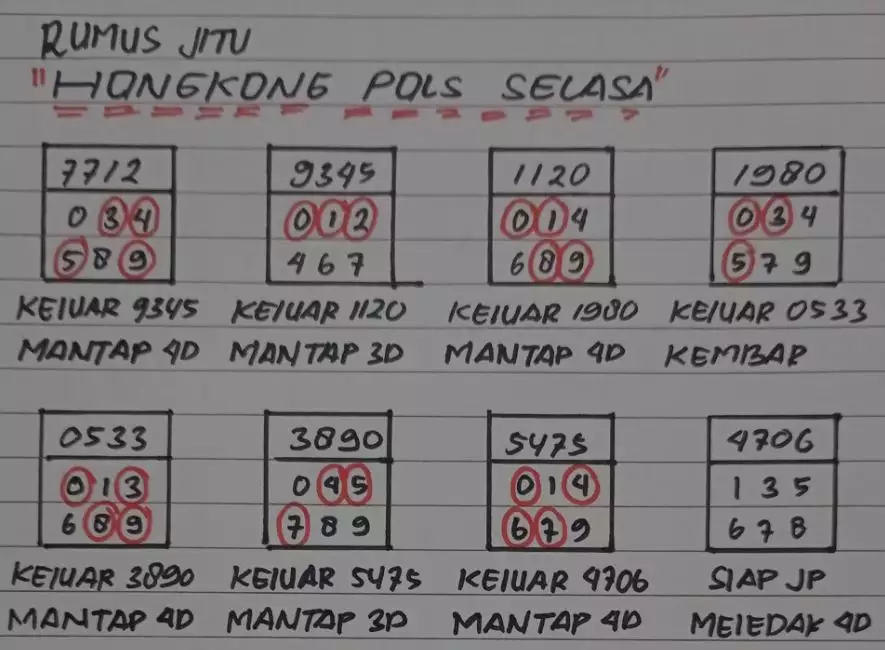 RUMUS JITU
"HONGKONG POLS SELASA"
7712
0 3 4
5 8 9
KELUAR 9345
MANTAP 4D
9345
0 1 2
4 6 7
KELUAR 1120
MANTAP 3D
1120
0 1 4
6 8 9
KELUAR 1980
MANTAP 4D
1980
0 3 4
5 7 9
KELUAR 0533
KEMBAR
0533
0 1 3
6 8 9
KELUAR 3890
MANTAP 4D
3890
0 4 5
7 8 9
KELUAR 5475
MANTAP 3D
5475
0 1 4
6 7 9
KELUAR 4706
MANTAP 4D
4706
1 3 5
6 7 8
SIAP JP
MELEDAK 4D